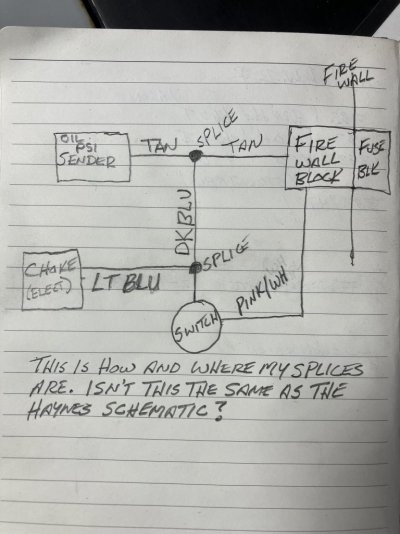 FIRE
WALL
OIL
PSI
SENDER
TAN
SPLICE
TAN
FIRE
WALL
BLOCK
FUSE
BLK
DK BLU
CHOKE
(ELECT)
LT BLU
SPLICE
SWITCH
PINK/WH
THIS IS HOW AND WHERE MY SPLICES
ARE. ISN'T THIS THE SAME AS THE
HAYNES SCHEMATIC?